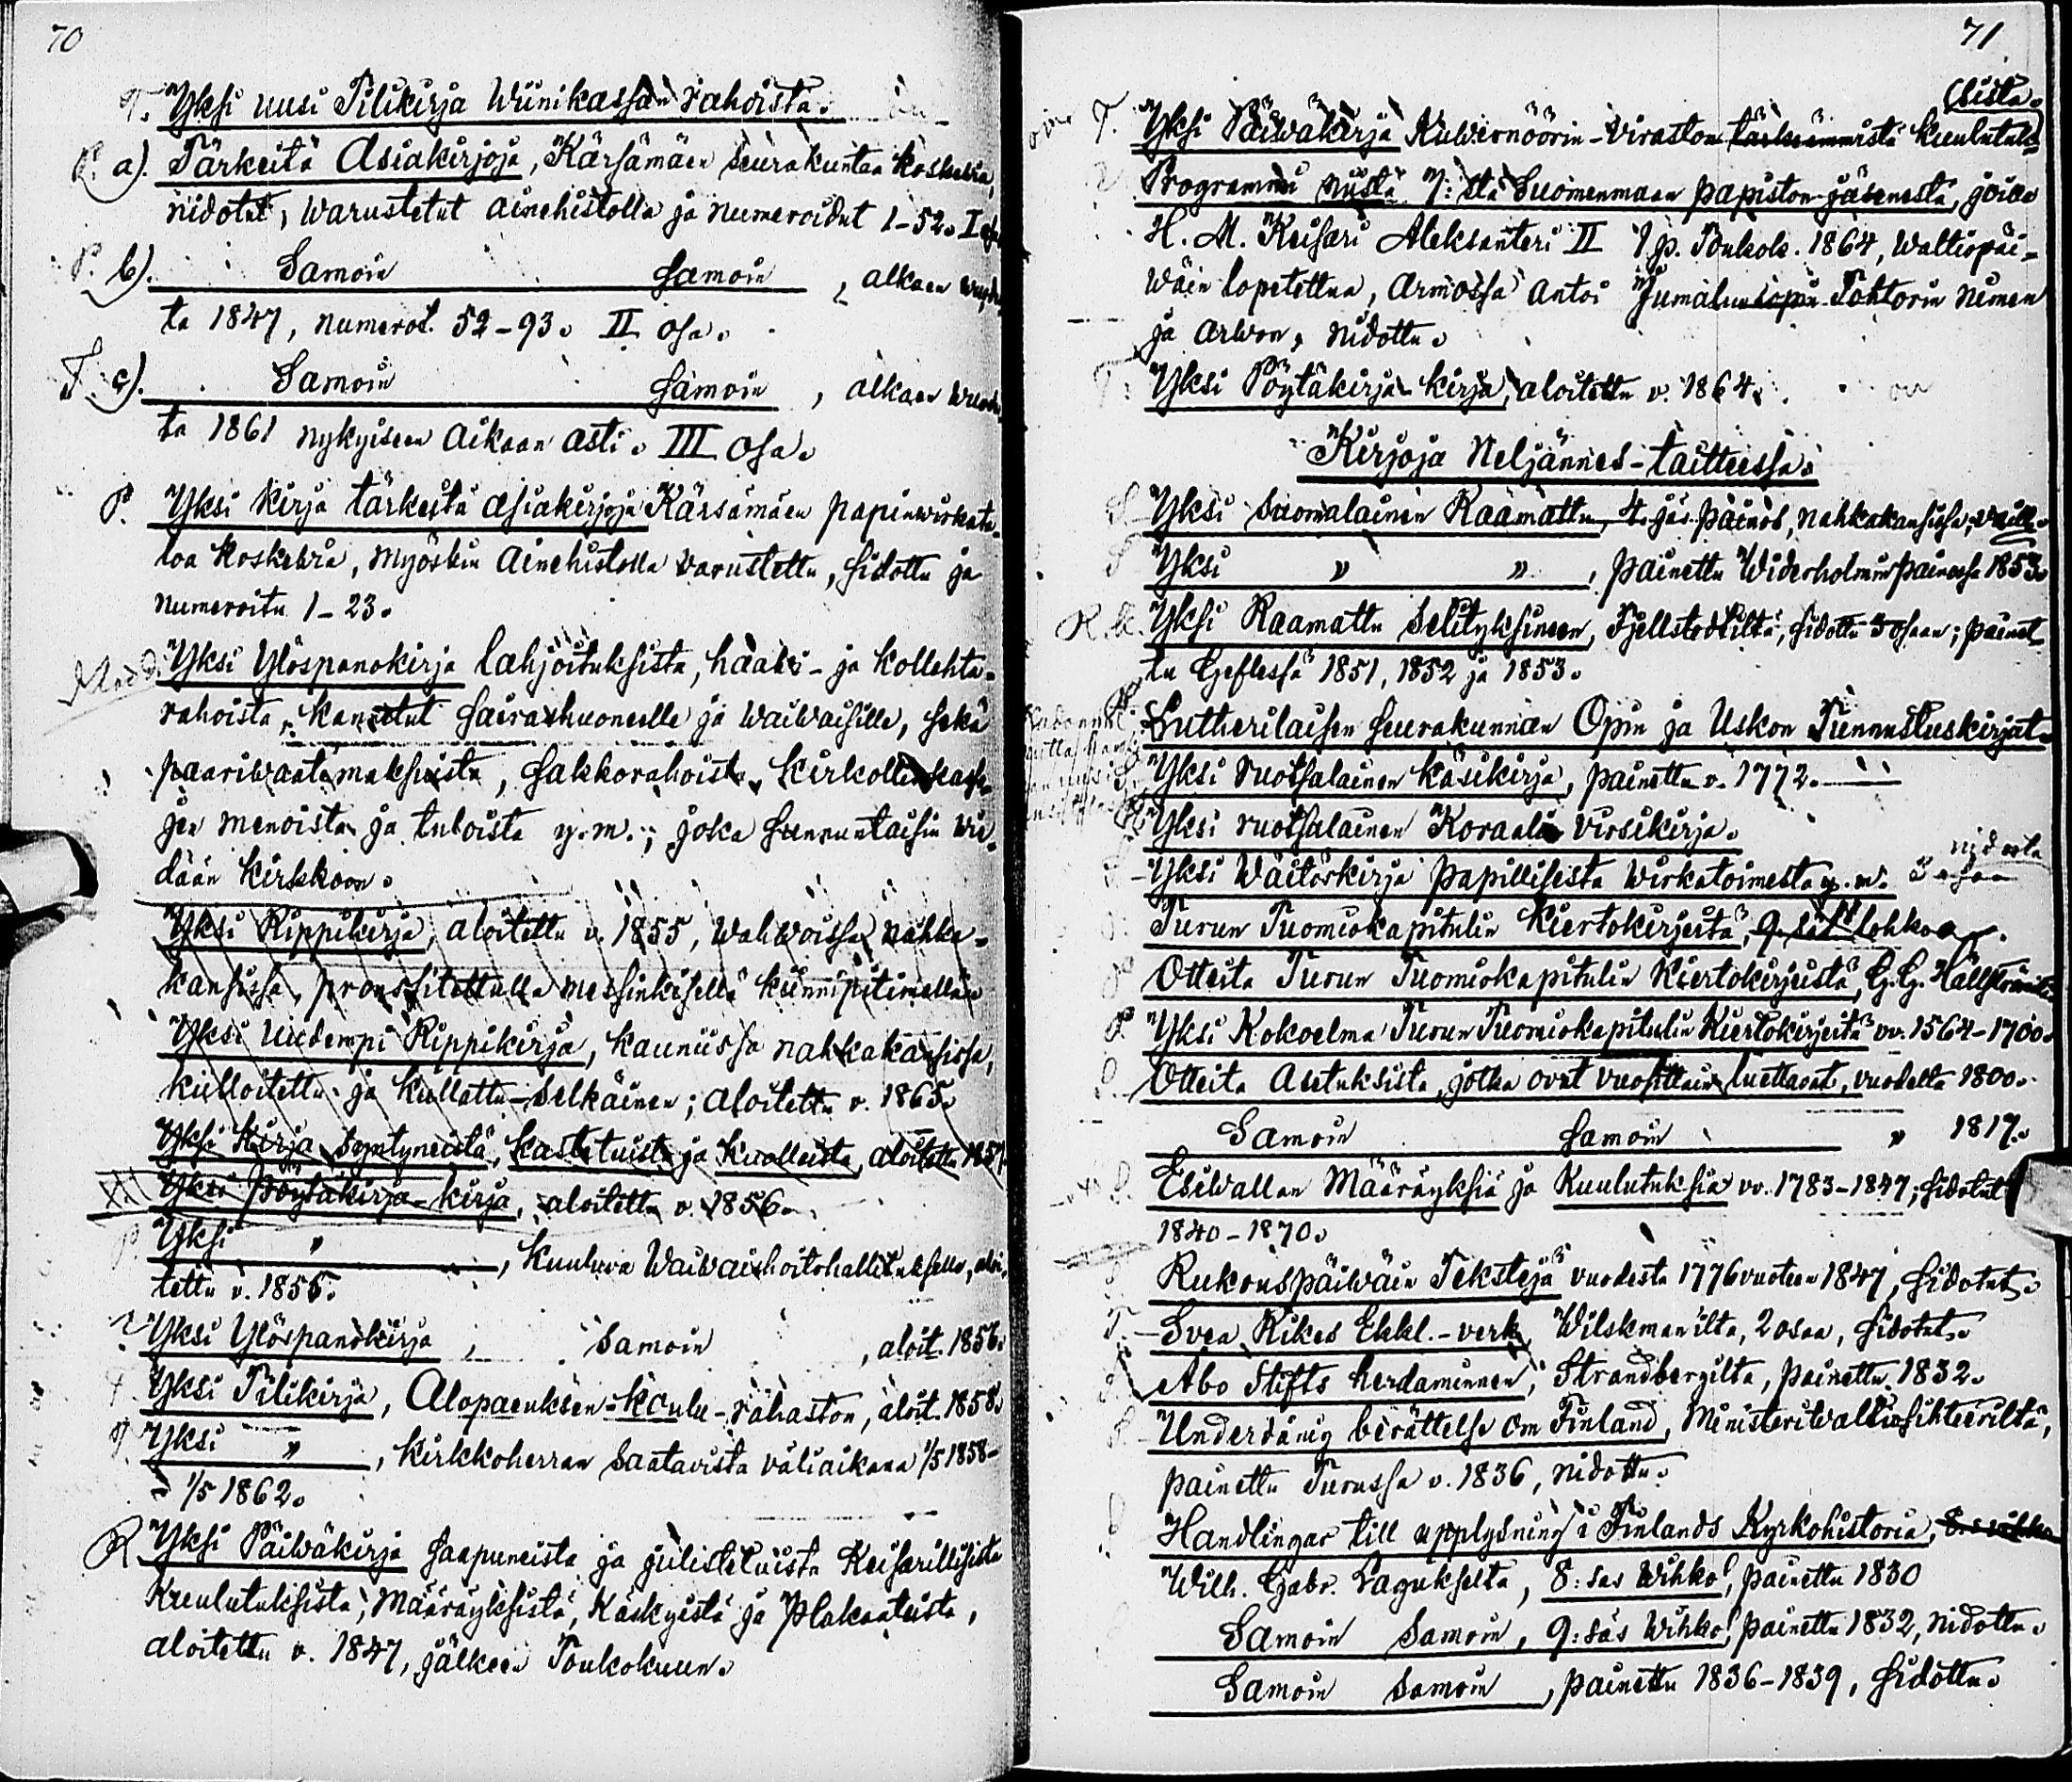 70
T. Yksi uusi Tilikirja Wiinikassan rahoista.
P. a). Tärkeitä Asiakirjoja, Kärsämäen seurakuntaa koskevia,
nidotut, warustetut ainehistolla ja numeroidut 1-52. I osa
P. b). Samoin Samoin, alkaen wuodes
ta 1847, numerot. 52-93. II osa.
T. c). Samoin Samoin, alkaen wuodes
ta 1861 nykyiseen aikaan asti. III osa.
P. Yksi kirja tärkeitä asiakirjoja Kärsämäen papinwirkata-
loa koskevia, myöskin ainehistolla varustettu, sidottu ja
numeroitu 1-23.
Yksi Ylöspanokirja lahjoituksista, haaksi- ja kollehta-
rahoista, kannetut sairashuoneelle ja waiwaisille, sekä
paariwaatemaksuista, sakkorahoista, kirkollis kass-
jen menoista ja tuloista y.m.; joka sunnuntaisin wie-
dään kirkkoon.
Yksi Rippikirja, aloitettu v. 1855, wahwoissa nahka-
kansissa, pronssitettulla messinkisellä kiinnipitimellä.
Yksi uudempi Rippikirja, kauniissa nahkakansissa,
kulloitettu- ja kullattu-selkäinen; aloitettu v. 1865.
Yksi kirja syntyneistä, kastetuista ja kuolleista, aloitettu 185
Yksi pöytäkirja-kirja, aloitettu v. 1856.
P. Yksi „, kuuluva Waiwaishoitohallitukselle, aloi-
tettu v. 1856.
Yksi Ylöspanokirja, Samoin, aloit. 1856.
Yksi Tilikirja, Alopaeuksen-koulu-rahaston, aloit. 1858.
Yksi „, kirkkoherran saatavista väliaikana 1/5 1858-
1/5 1862.
R Yksi Päiwäkirja saapuneista ja julistetuista Keisarillisista
kuulutuksista, määräyksistä, käskyistä ja plakaateista,
aloitettu v. 1847, jälkeen Toukokuun.
71
(sista.
T. Yksi Päiwäkirja Kuwernöörin-viraston tärkeimmistä kuulutuk-
Programmi niistä 7:stä Suomenmaan papiston-jäsenestä, joille
H. M. Keisari Aleksanteri II 1 p. Toukok. 1864, Waltiopäi-
wäin lopetettua, armossa antoi Jumaluusopin Tohtorin nimen
ja arwon, nidottu.
T: Yksi Pöytäkirja-kirja, aloitettu v. 1864.
Kirjoja Neljännes-taitteessa.
Yksi Suomalainen Raamattu, 4. jäs painos, nahkakansissa,
Yksi „ „, painettu Widerholmin painossa 1853.
R.K. Yksi Raamattu Selityksineen, Fjellstedtiltä, sidottu 3 osaan; painet-
tu Geflessä 1851, 1852 ja 1853.
Lutherilaisen seurakunnan Opin ja Uskon Tunnustuskirjat.
Yksi ruotsalainen käsikirja, painettu v. 1772.
Yksi ruotsalainen Koraali virsikirja.
Yksi Wäitöskirja papillisesta wirkatoimesta y.m. 3 osaa
Turun Tuomiokapitulin kiertokirjeitä, 9. lohkoa.
Otteita Turun Tuomiokapitulin kiertokirjeistä, G.G. Hällströmiltä
P. Yksi Kokoelma Turun Tuomiokapitulin kiertokirjeitä vv. 1564-1700.
Otteita Asetuksista, jotka ovat vuosittain luettavat, vuodelta 1800.
Samoin Samoin „ 1817.
Esiwallan Määräyksiä ja Kuulutuksia vv. 1783-1847; sidotut
1840-1870.
Rukouspäiwäin Tekstejä vuodesta 1776 vuoteen 1847, sidotut.
T. Svea Rikes Ekkl.-verk, Wilskmanilta, 2 osaa, sidotut.
Åbo Stifts herdaminnen, Strandbergilta, painettu 1832.
Underdånig berättelse om Finland, Ministeriwaltiosihteeriltä,
painettu Turussa v. 1836, nidottu.
Handlingar till upplysning i Finlands Kyrkohistoria,
Wilh. Gabr. Lagukselta, 8:sas wihko, painettu 1830
Samoin Samoin, 9:säs wihko, painettu 1832, nidottu.
Samoin Samoin, painettu 1836-1839, sidottu.